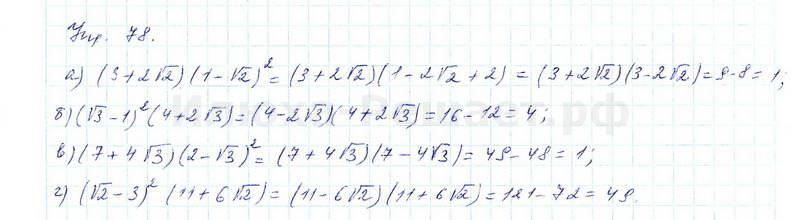 Упр. 78.
а) (3+2√2)(1-√2)² = (3+2√2)(1-2√2+2) = (3+2√2)(3-2√2)=9-8=1;
б) (√3-1)²(4+2√3)=(4-2√3)(4+2√3)=16-12=4;
в) (7+4√3)(2-√3)²=(7+4√3)(7-4√3)=49-48=1;
г) (√2-3)²(11+6√2)=(11-6√2)(11+6√2)=121-72=49.